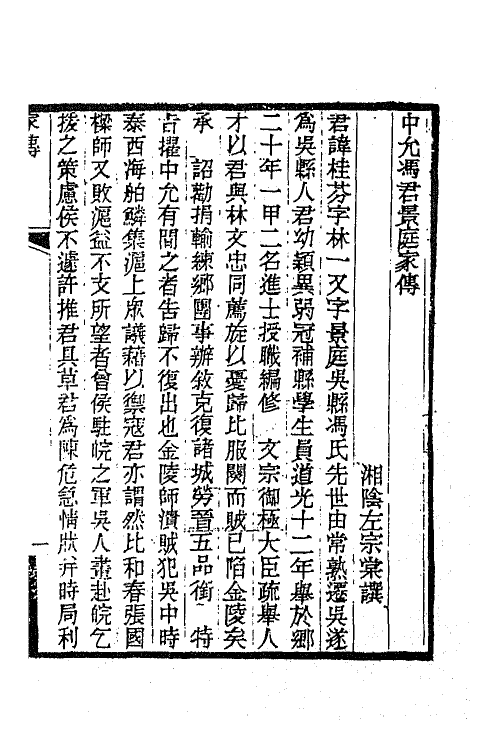 中允馮君景庭家傳
湘陰左宗棠譔
君諱桂芬字林一又字景庭吳縣馮氏先世由常熟遷吳遂
為吳縣人君幼穎異弱冠補縣學生員道光十二年舉於鄉
二十年一甲二名進士授職編修　文宗御極大臣疏舉人
才以君與林文忠同薦旋以憂歸比服闋而賊已陷金陵矣
承　詔勸捐輸練鄉團事辦敘克復諸城勞晉五品銜　特
旨擢中允有間之者告歸不復出也金陵師潰賊犯吳中時
泰西海舶鱗集滬上眾議藉以禦寇君亦謂然比和春張國
樑師又敗滬益不支所望者曾侯駐皖之軍吳人書赴皖乞
援之策慮侯不遽許推君具草君為陳危急情狀并時局利
家傳
一